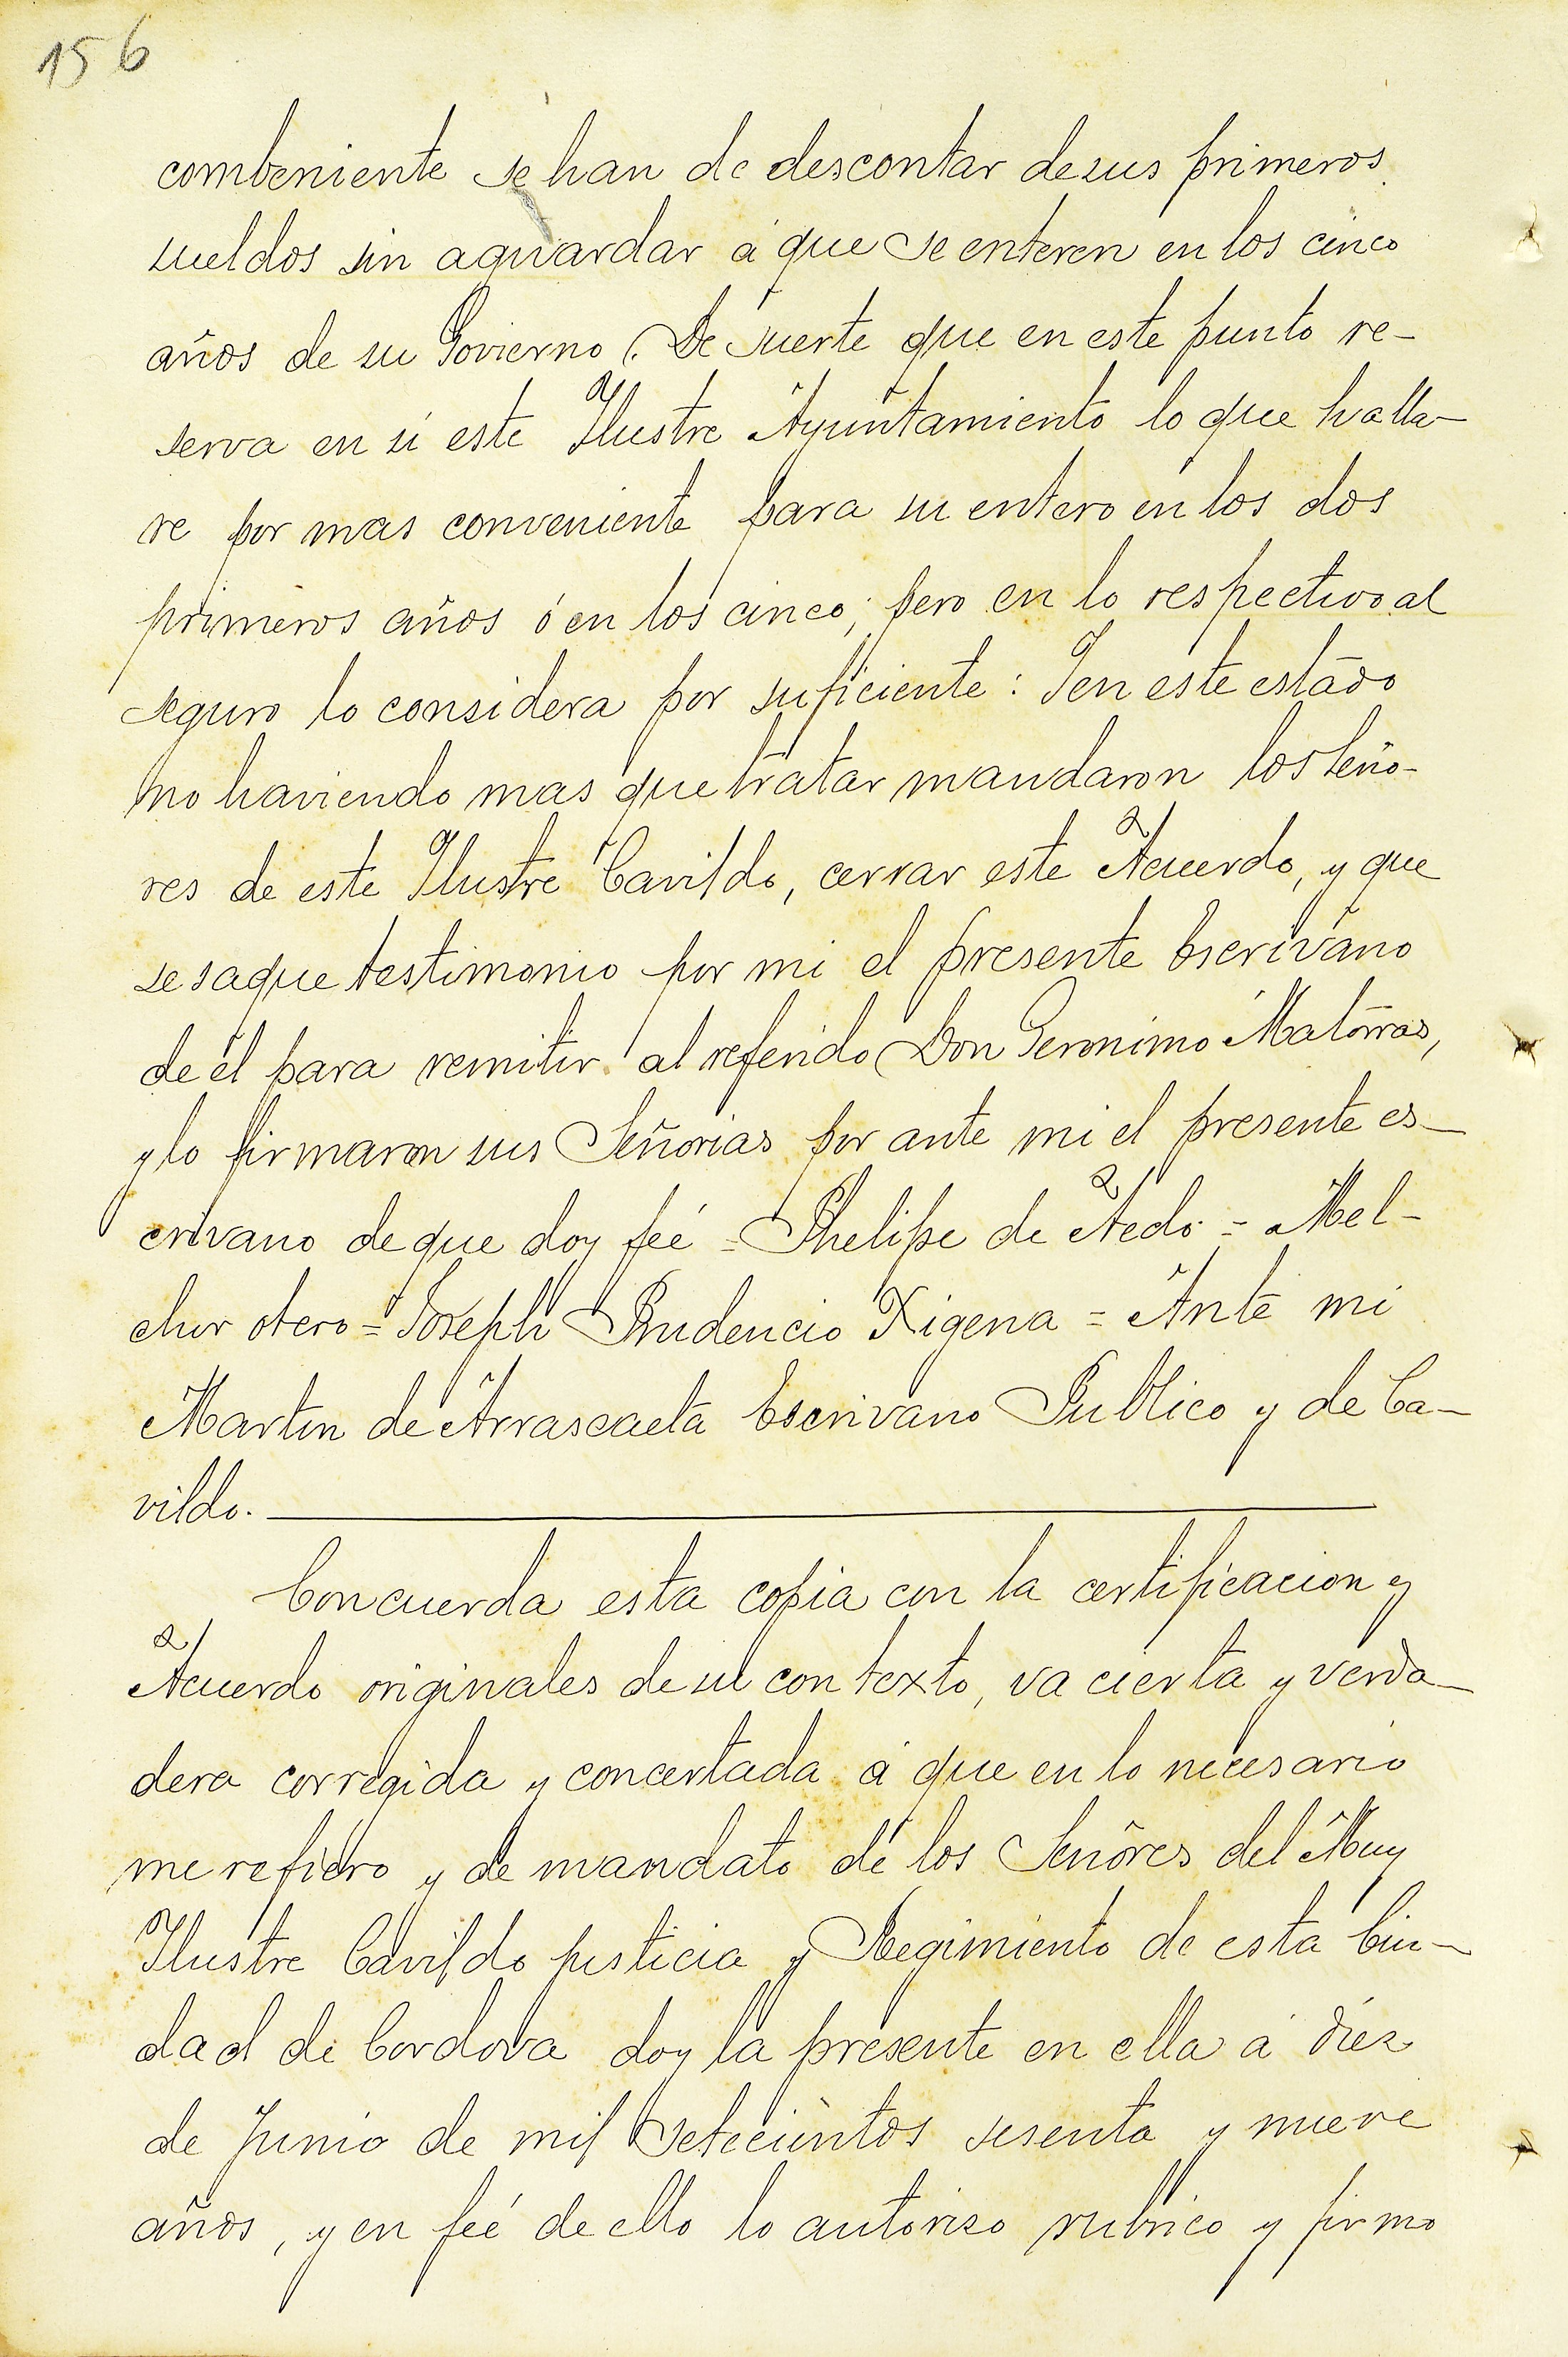 156
combeniente se han de descontar de sus primeros
sueldos sin aguardar á que se enteren en los cinco
años de su Govierno. De suerte que en este punto re-
serva en sí este Ilustre Ayuntamiento lo que halla-
re por mas conveniente para su entero en los dos
primeros años ó en los cinco; pero en lo respectivo al
seguro lo considera por suficiente: I en este estado
no haviendo mas que tratar mandaron los Seño-
res de este Ilustre Cavildo, cerrar este Acuerdo, y que
se saque testimonio por mi el presente Escrivano
de él para remitir al referido Don Geronimo Matorras,
y lo firmaron sus Señorias por ante mi el presente es-
crivano de que doy feé = Phelipe de Aedo = Mel-
chor otero = Joseph Prudencio Xigena = Ante mi
Martin de Arrascaeta Escrivano Publico y de Ca-
vildo.
Concuerda esta copia con la certificacion y
Acuerdo originales de su contexto, va cierta y verda-
dera corregida y concertada á que en lo necesario
me refiero y de mandato de los Señores del Muy
Ilustre Cavildo justicia y Regimiento de esta Ciu-
dad de Cordova doy la presente en ella á diez
de Junio de mil setecientos sesenta y nueve
años, y en feé de ello lo autoriso rubrico y firmo